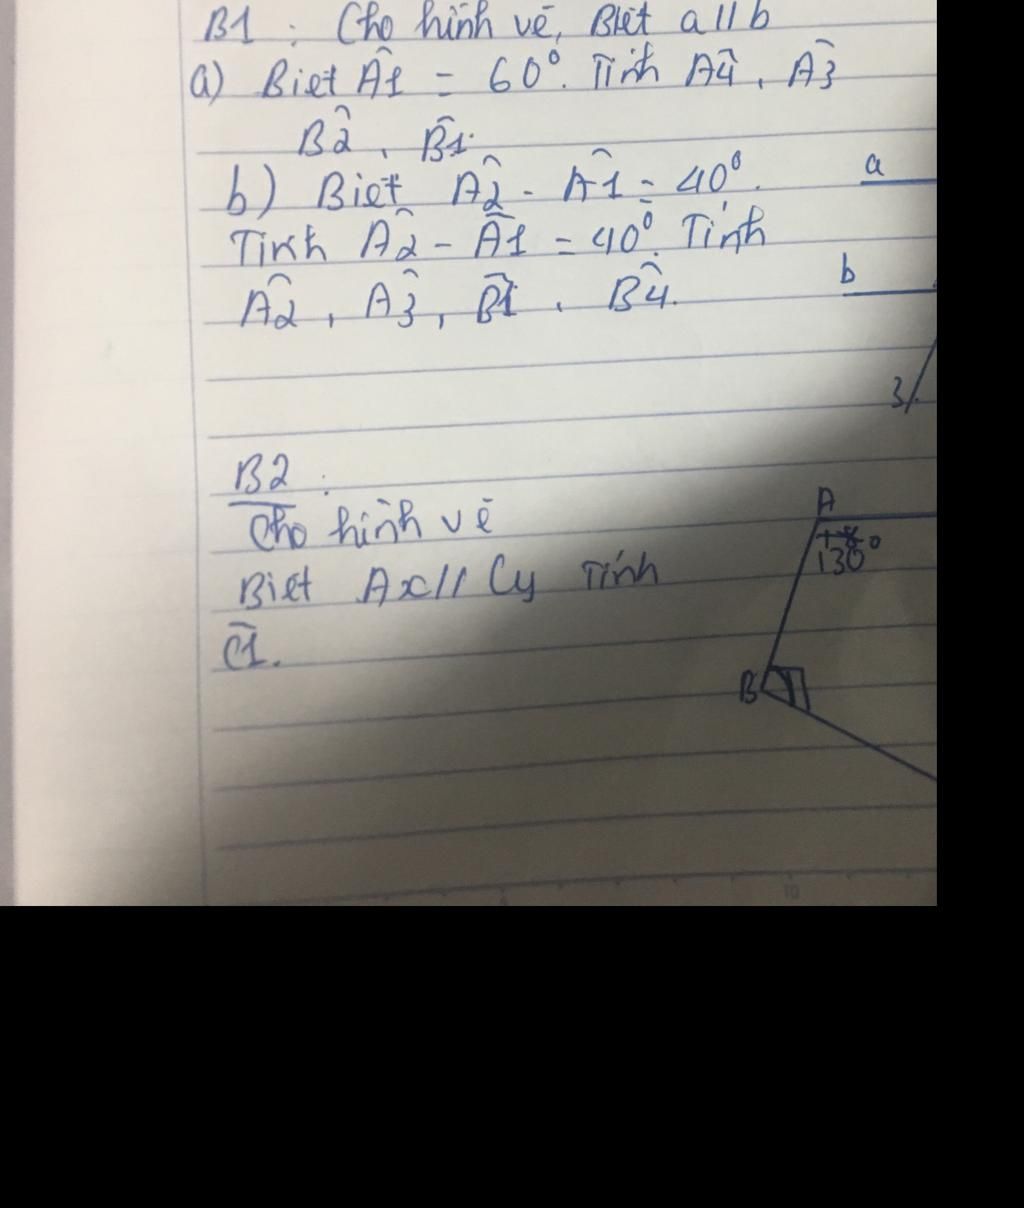 B1 : Cho hình vẽ, Biết a // b
a) Biết Â1 = 60°. Tính Â4, Â3
B̂2, B̂1.
b) Biết Â2 - Â1 = 40°.
Tính Â2 - Â1 = 40°. Tính
Â2, Â3, B̂1, B̂4.
a
b
3
B2 :
Cho hình vẽ
Biết Ax // Cy Tính
Ĉ1.
A
130°
B